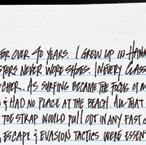 FOR OVER 40 YEARS. I GREW UP IN HAWAI
STERS NEVER WORE SHOES. IN EVERY CLASS
CHER. AS SURFING BECAME THE FOCUS OF M
& HAD NO PLACE AT THE BEACH. AW THAT
TOE STRAP WOULD PULL OUT IN ANY FAST
ESCAPE & EVASION TACTICS WERE ESSENT